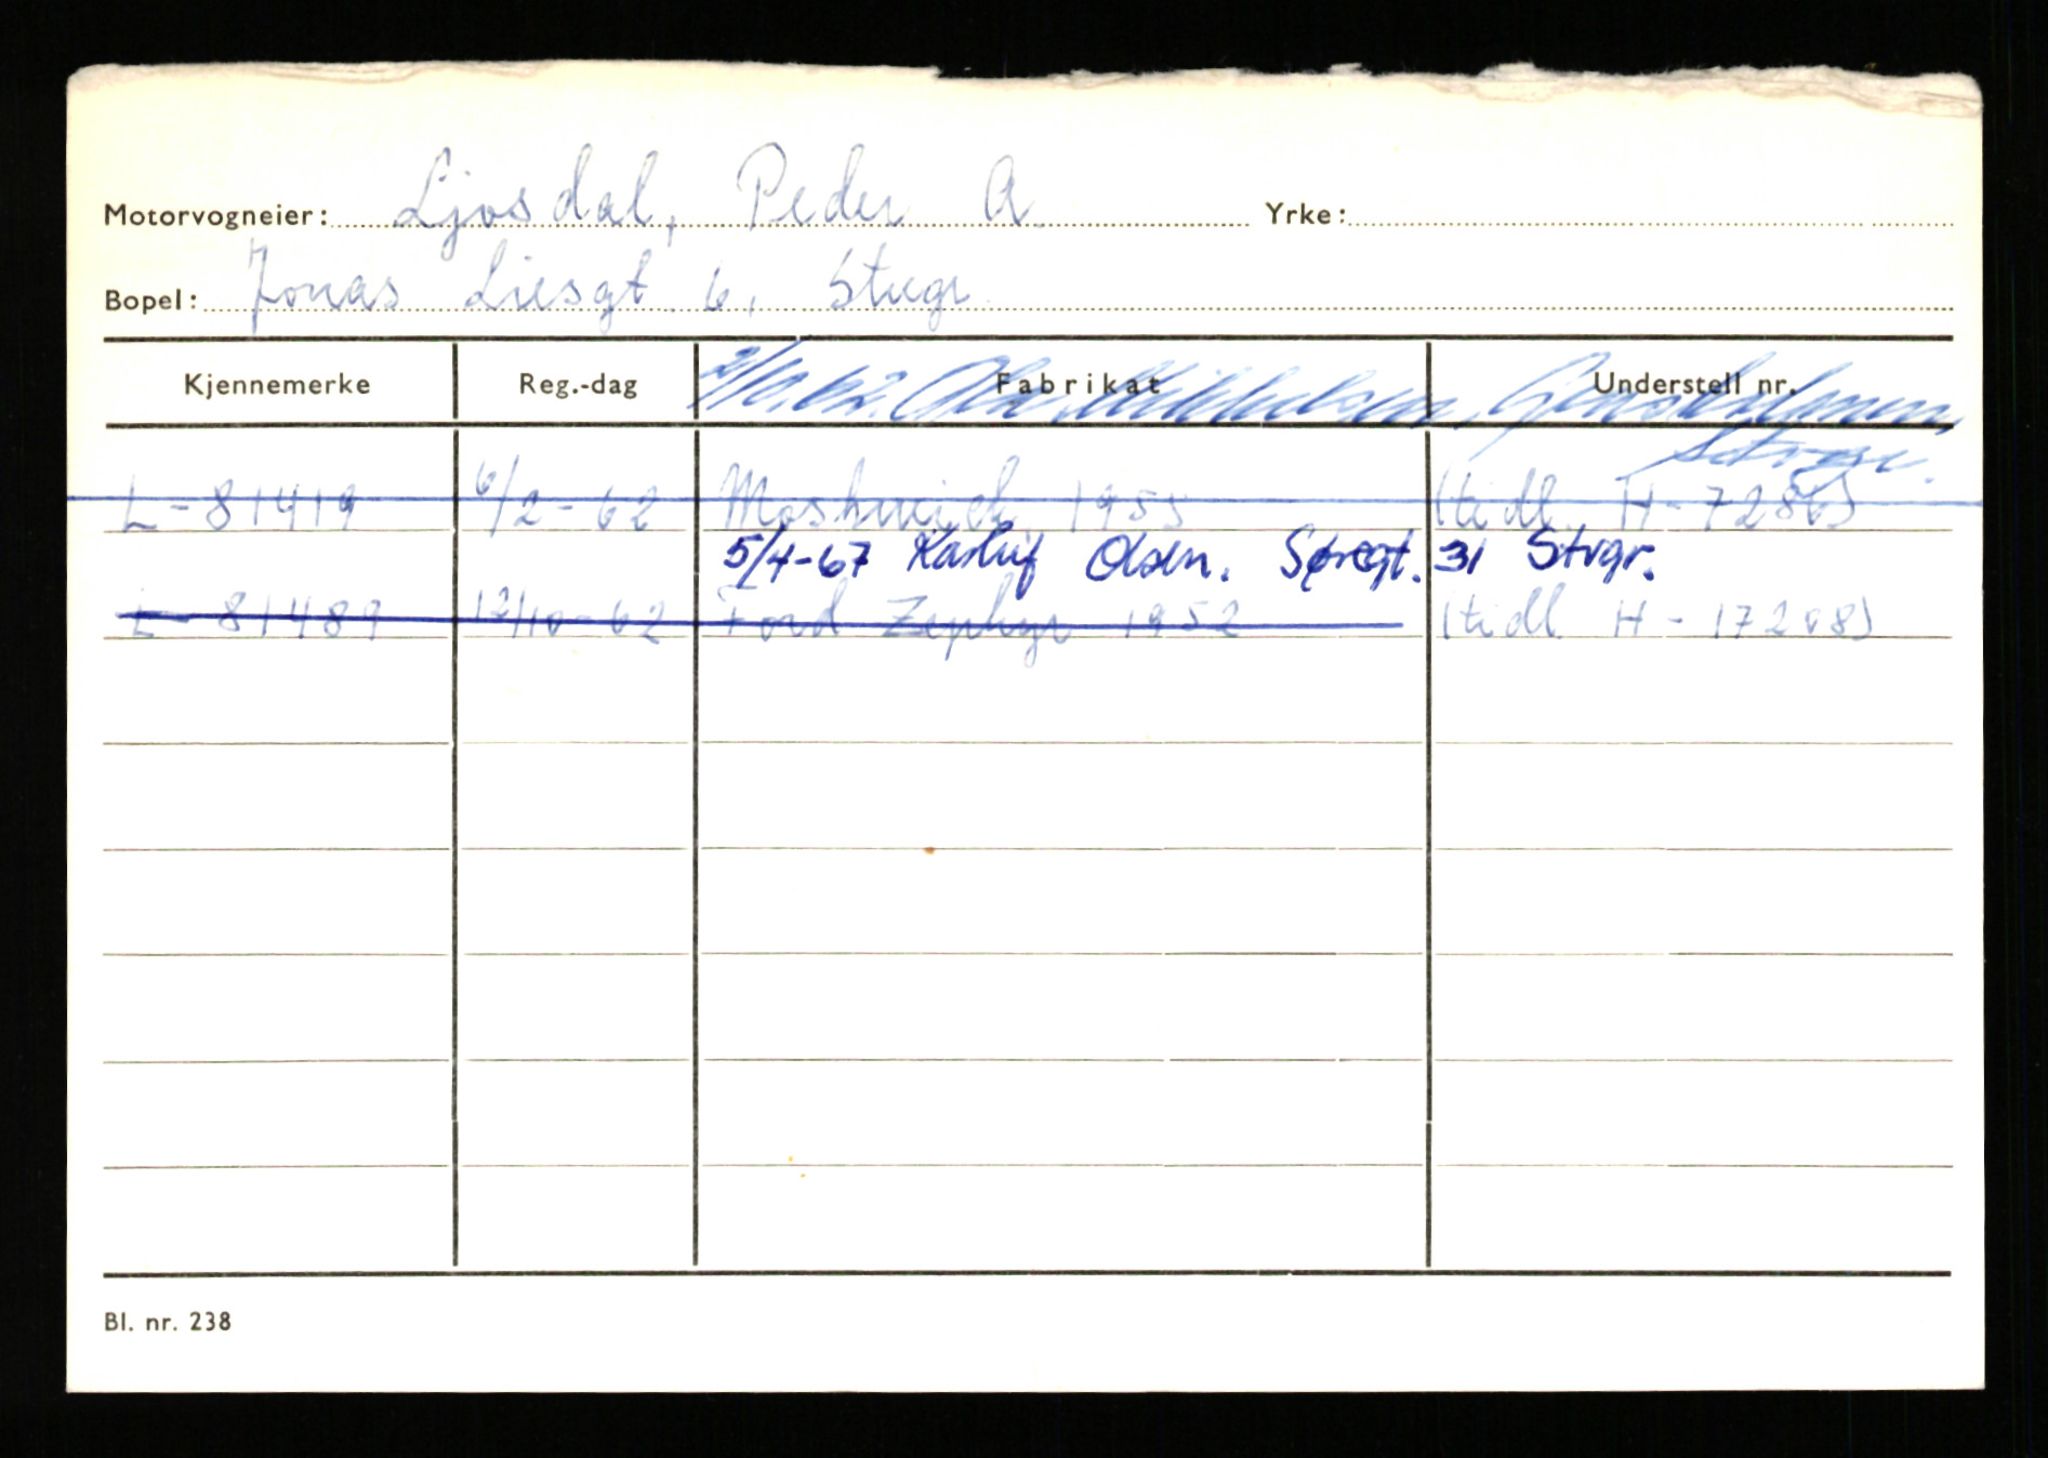 Motorvogneier: Ljosdal, Peder A. Yrke:
Bopel: Jonas Liesgt 6, Stvgr.
Kjennemerke Reg.-dag Fabrikat Understell nr.
Stvgr.
L-81419 6/2-62 1955 (tidl. H-72865)
5/4-67 Karluf Olsen. Søregt. 31 Stvgr.
L-81489 12/10-62 Ford Zephyr 1952 (tidl H-17208)
Bl. nr. 238